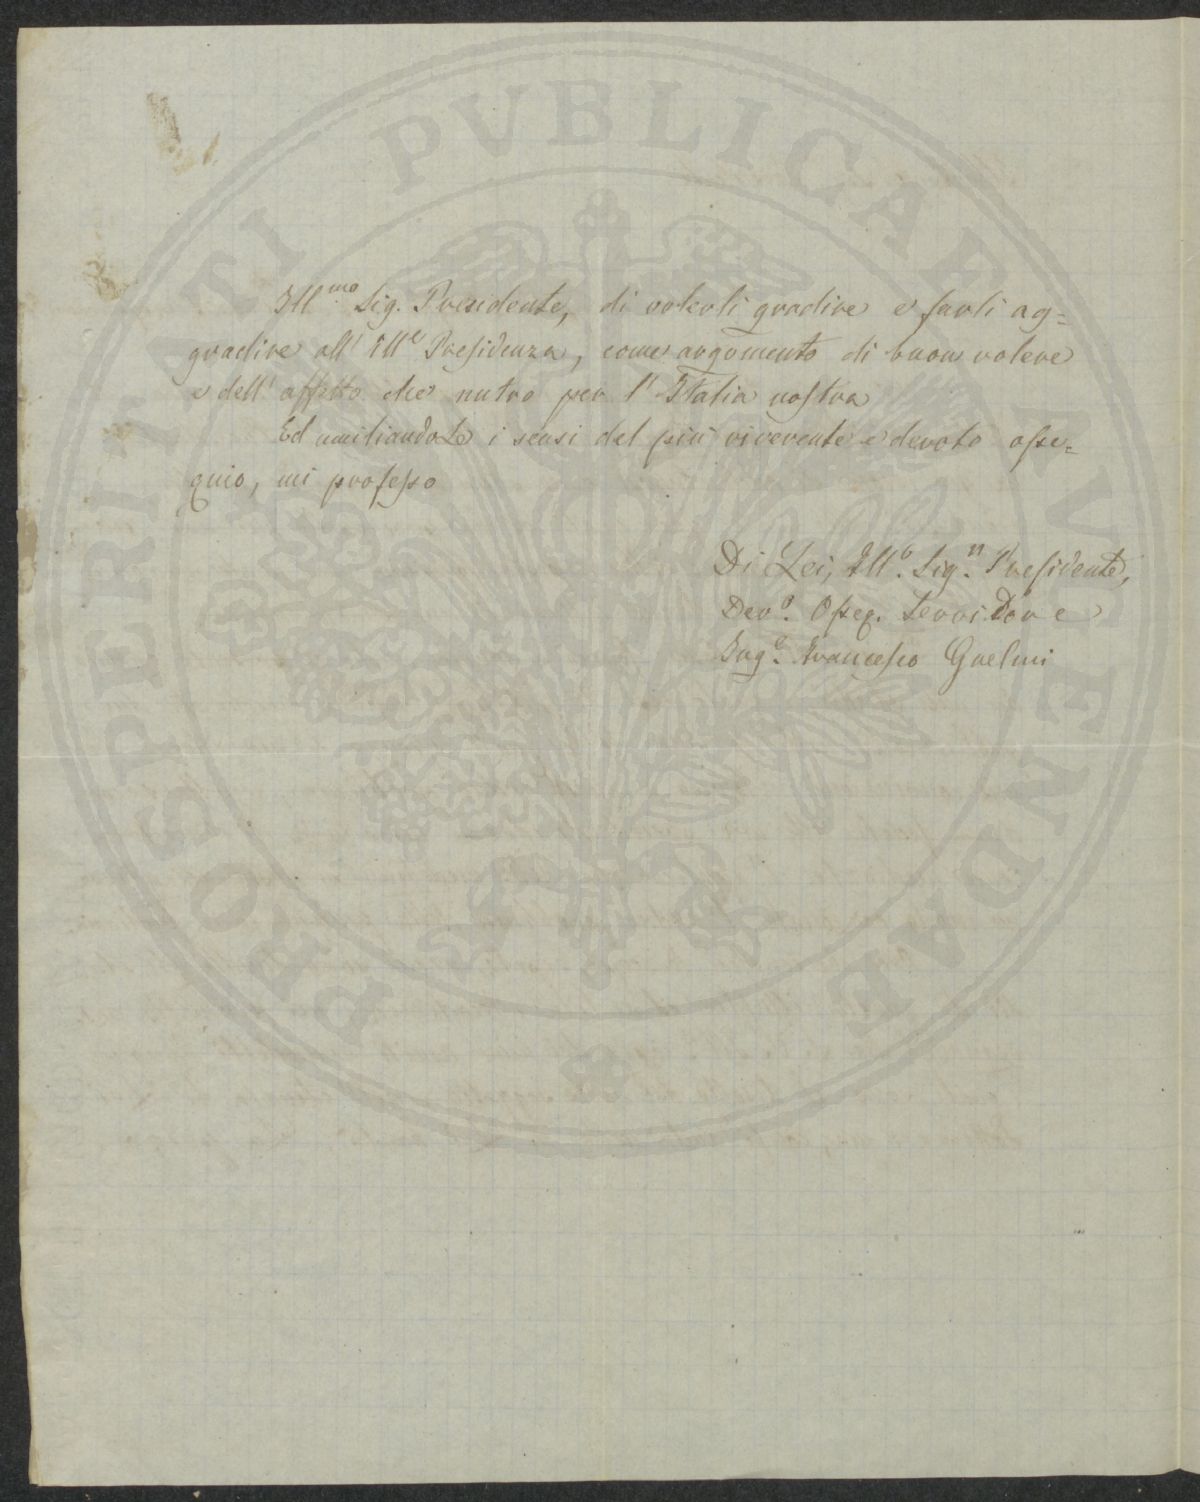 PROSPERITATI PVBLICAE AVGENDAE
Ill.mo Sig. Presidente, di volerli gradire e farli ag=
gradire all' Ill.e Presidenza, come argomento di buon volere
e dell' affetto che nutro per l' Italia nostra
Ed umiliandoLe i sensi del più riverente e devoto osse=
quio, mi professo
Di Lei, Ill.o Sig.r Presidente,
Dev.o Osseq. Servidore
Ing.e Francesco Guelmi